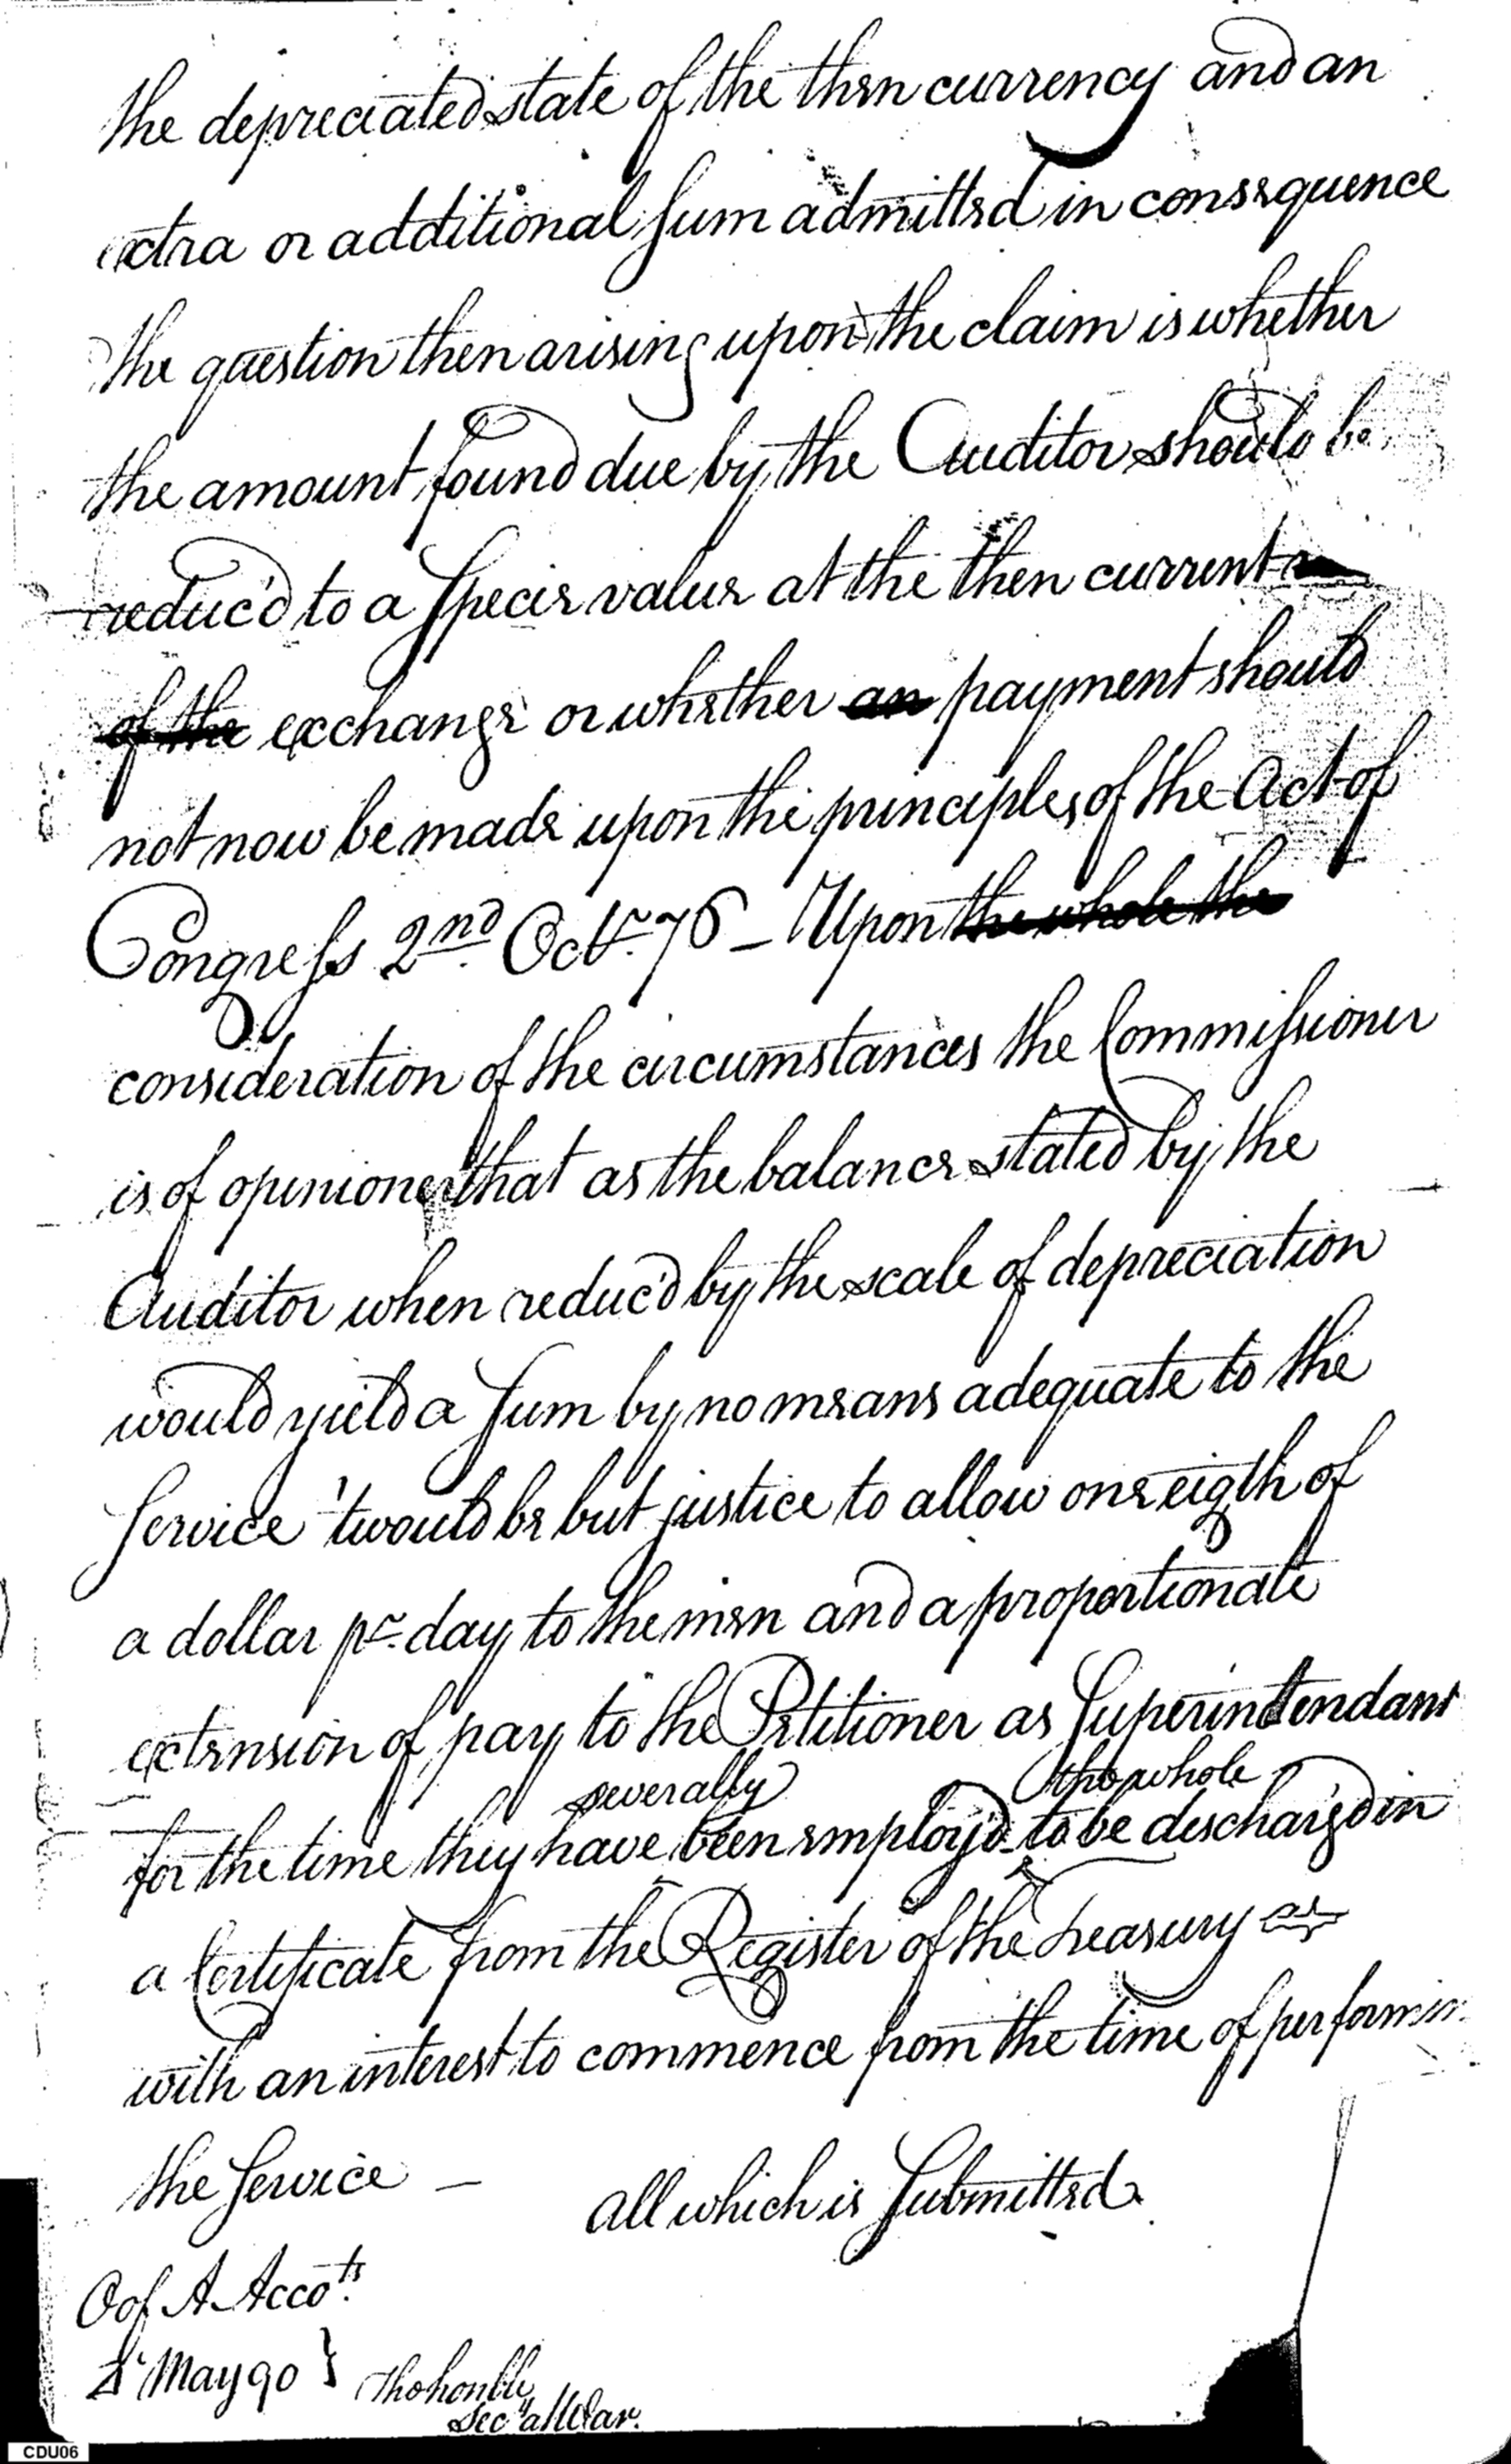 the depreciated state of the then currency and an
extra or additional sum admitted in consequence
the question then arising upon the claim is whether
the amount found due by the Auditor should be
reduc'd to a specie value at the then current
of the exchange or whether an payment should
not now be made upon the principles of the Act of
Congress 2nd Octr. 76 - Upon the whole the
consideration of the circumstances the Commissioner
is of opinion that as the balance stated by the
Auditor when reduc'd by the scale of depreciation
would yield a sum by no means adequate to the
service 'twould be but justice to allow one eigth of
a dollar pr. day to the men and a proportionate
extension of pay to the Petitioner as Superintendant
severally the whole
for the time they have been employ'd to be dischargd in
a Certificate from the Register of the Treasury as
with an interest to commence from the time of performin
the Service -
all which is Submitted
O of A Accots.
May 90 } The honble
Secy at War.
CDU06